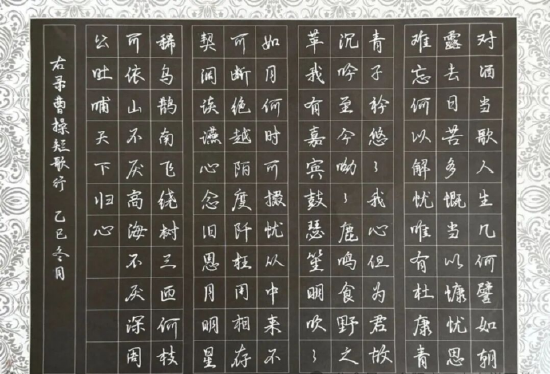 对酒当歌人生几何譬如朝
露去日苦多慨当以慷忧思
难忘何以解忧唯有杜康青
青子衿悠々我心但为君故
沉吟至今呦々鹿鸣食野之
苹我有嘉宾鼓瑟笙明吹々
如月何时可掇忧从中来不
可断绝越陌度阡枉用相存
契阔谈讌心念旧恩月明星
稀乌鹊南飞绕树三匝何枝
可依山不厌高海不厌深周
公吐哺天下归心
右录曹操短歌行 乙巳冬月